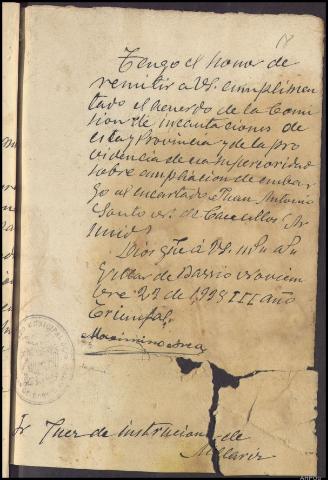 18
Tengo el honor de
remitir a VS. cumplimen
tado el acuerdo de la Comi
sion de incautaciones de
esta Provincia y de la pro
videncia de esa superioridad
sobre ampliacion de embar
go al encartado Juan Antonio
Santo de
Dios gue á VS. ms. as.
Villar de Barrio Noviem
bre 22 de 1938 III año
Triunfal.
Maximino
Sr. Juez de instrucion de
Allariz